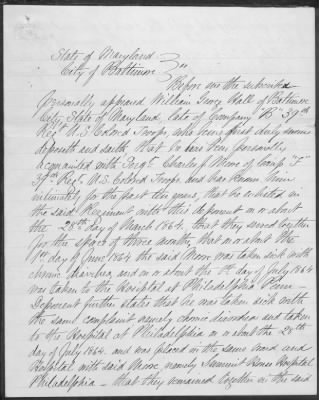 State of Maryland
City of Baltimore } ss
Before me the subscribed
Personally appeared William Henry Hall of Baltimore
City, State of Maryland, late of Company "B" 39th
Regt U.S. Colored Troops, who being first duly sworn
deposeth and saith that he has been personally
acquainted with Sergt. Charles J. Moore of Comp "F"
39th Regt. U.S. Colored Troops and has known him
intimately for the past ten years, that he enlisted in
the said Regiment with this deponent on or about
the 28th day of March 1864, that they served together
for the space of three months, that on or about the
1st day of June 1864 the said Moore was taken sick with
chronic diarrhea and on or about the day of July 1864
was taken to the Hospital at Philadelphia Penn
Deponent further states that he was taken sick with
the same complaint namely chronic diarrhea and taken
to the Hospital at Philadelphia on or about the 28th
day of July 1864 and was placed in the same ward and
Hospital with said Moore, namely Summit House Hospital
Philadelphia – that they remained together in the said